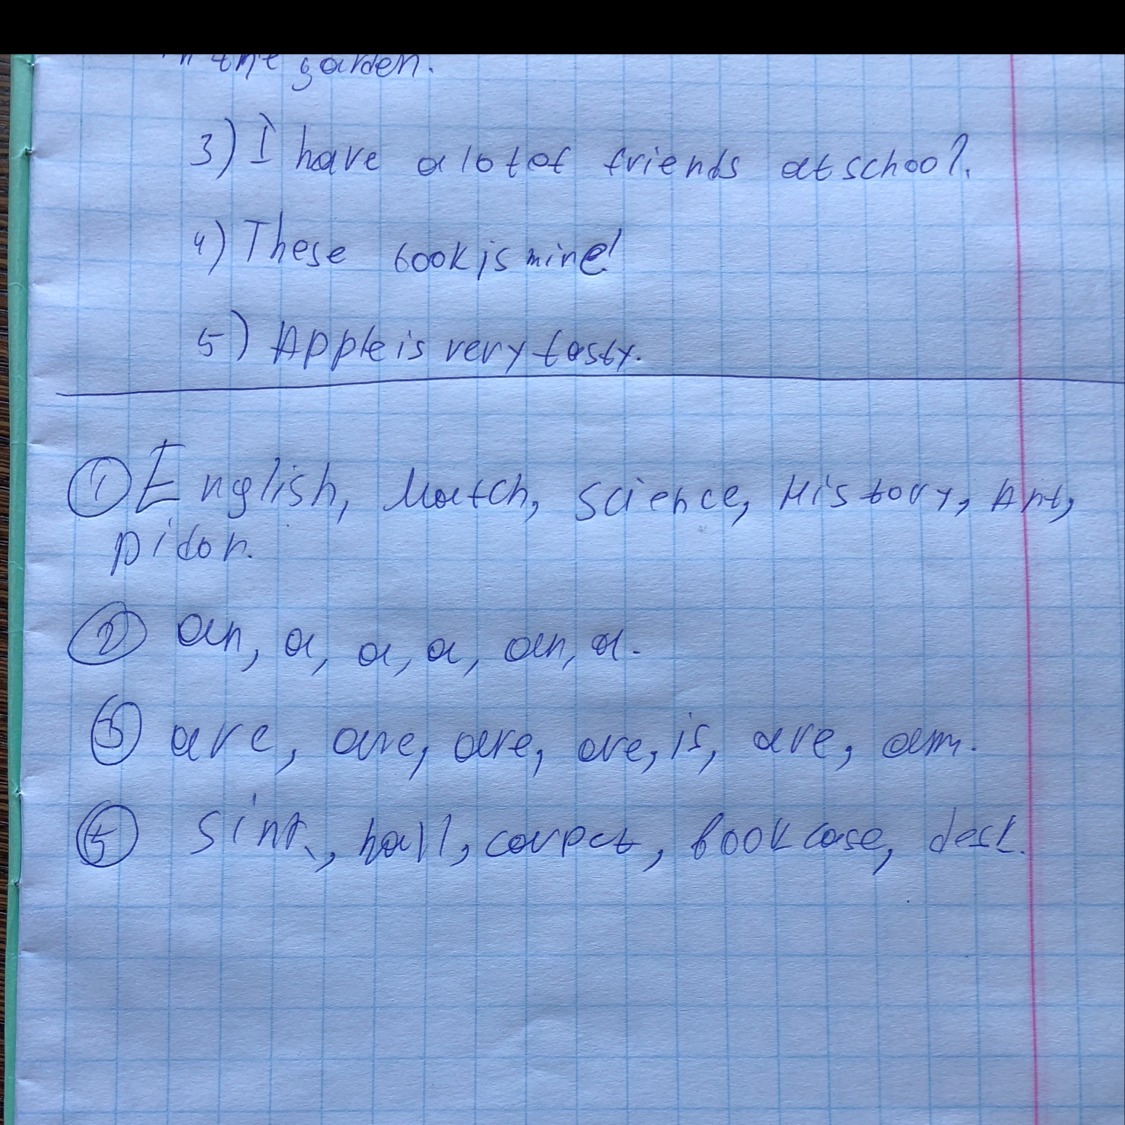 in the garden.
3) I have a lot of friends at school.
4) These book is mine!
5) Apple is very tasty.
① English, Match, Science, History, Art,
pidor.
② an, a, a, a, an, a.
③ are, are, are, are, is, are, am.
⑤ sink, hall, carpet, bookcase, desk.